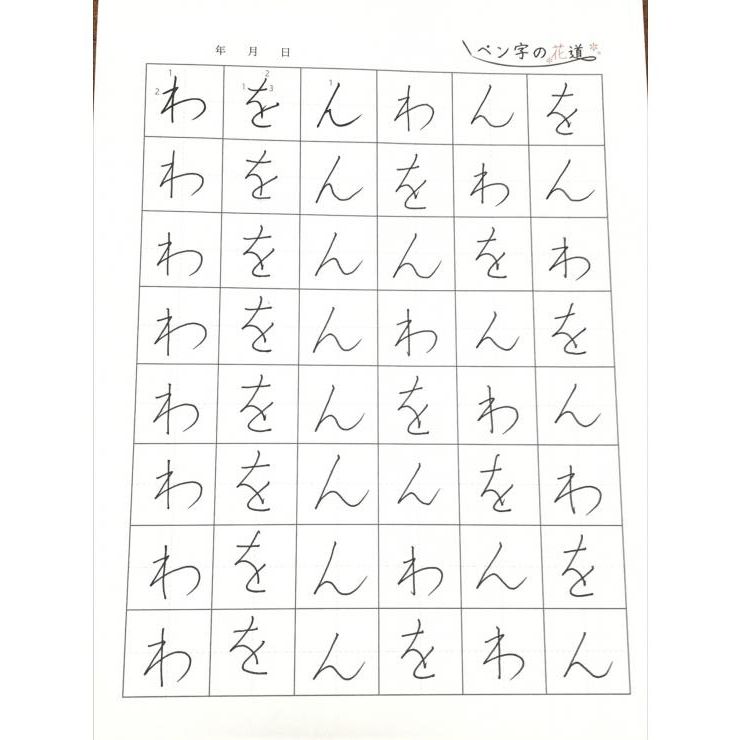 年 月 日
ペン字の花道
わ を ん わ ん を
わ を ん を わ ん
わ を ん ん を わ
わ を ん わ ん を
わ を ん を わ ん
わ を ん ん を わ
わ を ん わ ん を
わ を ん を わ ん